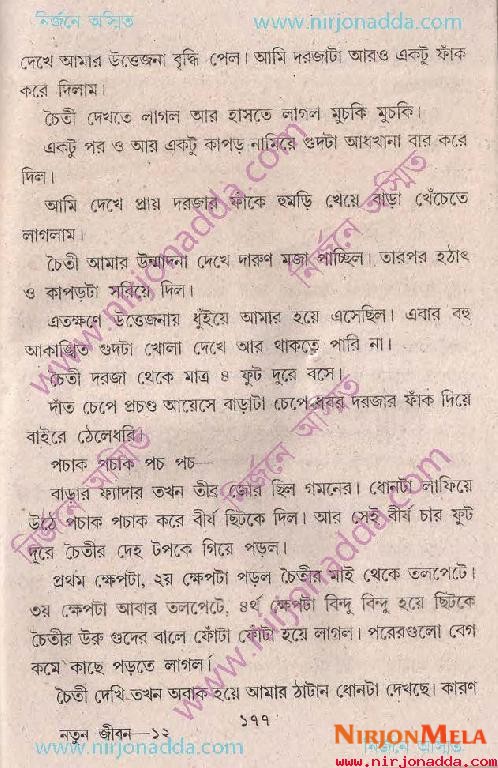 নির্জনে অস্মিত www.nirjonadda.com
দেখে আমার উত্তেজনা বৃদ্ধি পেল। আমি দরজাটা আরও একটু ফাঁক
করে দিলাম।
চৈতী দেখতে লাগল আর হাসতে লাগল মুচকি মুচকি।
একটু পর ও আয় একটু কাপড় নামিয়ে গুদটা আধখানা বার করে
দিল।
আমি দেখে প্রায় দরজার ফাঁকে হুমড়ি খেয়ে বাড়া খেঁচতে
লাগলাম।
চৈতী আমার উন্মাদনা দেখে দারুণ মজা পাচ্ছিল। তারপর হঠাৎ
ও কাপড়টা সরিয়ে দিল।
এতক্ষণে উত্তেজনায় ধুঁইয়ে আমার হয়ে এসেছিল। এবার বহু
আকাঙ্খিত গুদটা খোলা দেখে আর থাকতে পারি না।
চৈতী দরজা থেকে মাত্র ৪ ফুট দূরে বসে।
দাঁত চেপে প্রচণ্ড আয়েসে বাড়াটা চেপে ধরে দরজার ফাঁক দিয়ে
বাইরে ঠেলেধরি।
পচাক পচাক পচ পচ—
বাড়ার ফ্যাদার তখন তীর জোর ছিল গমনের। ধোনটা লাফিয়ে
উঠে পচাক পচাক করে বীর্য ছিটকে দিল। আর সেই বীর্য চার ফুট
দূরে চৈতীর দেহ টপকে গিয়ে পড়ল।
প্রথম ক্ষেপটা, ২য় ক্ষেপটা পড়ল চৈতীর মাই থেকে তলপেটে।
৩য় ক্ষেপটা আবার তলপেটে, ৪র্থ ক্ষেপটা বিন্দু বিন্দু হয়ে ছিটকে
চৈতীর উরু গুদের বালে ফোঁটা ফোঁটা হয়ে লাগল। পরেরগুলো বেগ
কমে কাছে পড়তে লাগল।
চৈতী দেখি তখন অবাক হয়ে আমার ঠাটান ধোনটা দেখছে। কারণ
১৭৭
নতুন জীবন—১২
NIRJONMELA
www.nirjonadda.com নির্জনে অস্মিত
www.nirjonadda.com